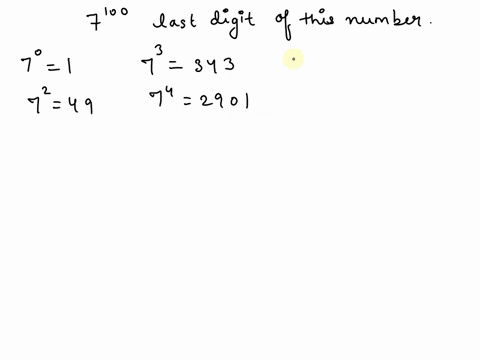 7^100 last digit of this number.
7^0 = 1 7^3 = 343
7^2 = 49 7^4 = 2901